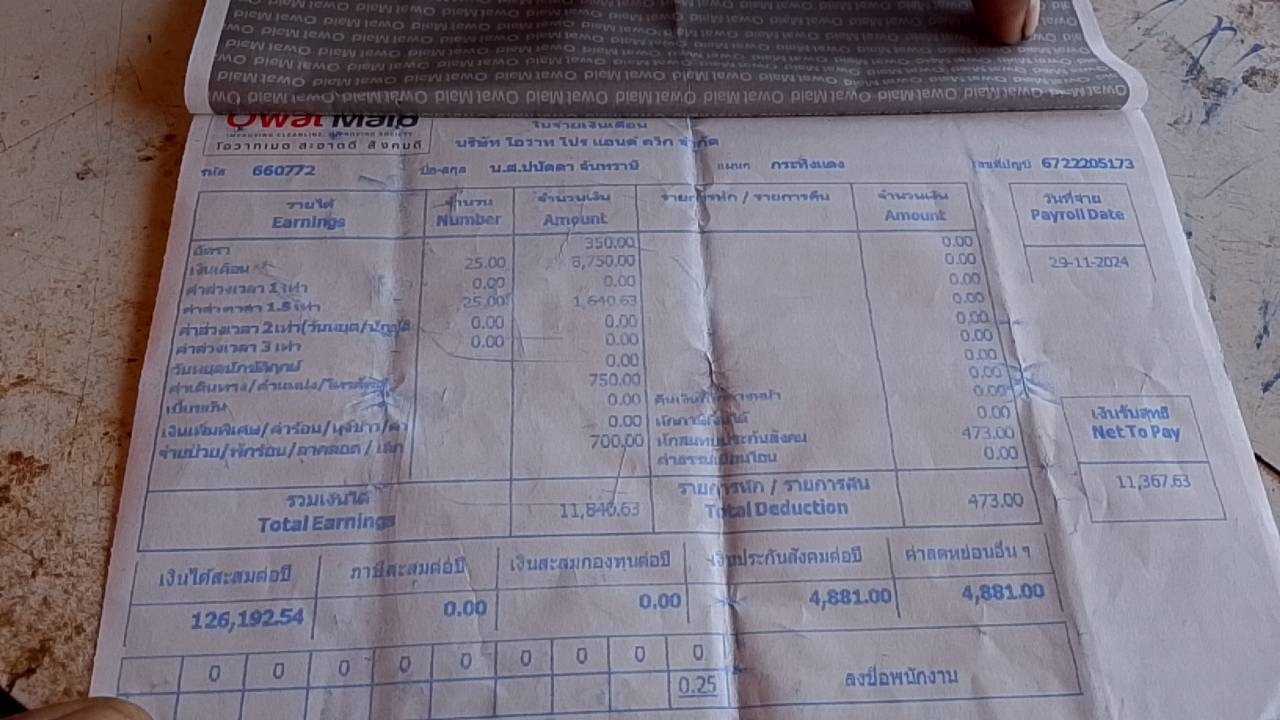 Owat Maid Owat Maid Owat Maid Owat Maid Owat Maid Owat Maid Owat Maid Owat Maid
Owat Maid
IMPROVING CLEANLINE, IMPROVING SOCIETY
โอวาทเมด สะอาดดี สังคมดี
ใบจ่ายเงินเดือน
บริษัท โอวาท โปร แอนด์ ควิก จำกัด
รหัส 660772 ชื่อ-สกุล น.ส.ปนัดดา จันทราษี แผนก กระทิงแดง เลขที่บัญชี 6722205173
รายได้ จำนวน จำนวนเงิน รายการหัก / รายการคืน จำนวนเงิน วันที่จ่าย
Earnings Number Amount Amount Payroll Date
อัตรา 350.00 0.00
เงินเดือน 25.00 8,750.00 0.00 29-11-2024
ค่าล่วงเวลา 1 เท่า 0.00 0.00 0.00
ค่าล่วงเวลา 1.5 เท่า 25.00 1,640.63 0.00
ค่าล่วงเวลา 2 เท่า(วันหยุด/นักขัต 0.00 0.00 0.00
ค่าล่วงเวลา 3 เท่า 0.00 0.00 0.00
วันหยุดนักขัตฤกษ์ 0.00 0.00
ค่าเดินทาง/ตำแหน่ง/โทรศัพท์ 750.00 0.00
เบี้ยขยัน 0.00 0.00
เงินเพิ่มพิเศษ/ค่าร้อน/ 0.00 หักภาษีเงินได้ 0.00
จ่ายป่วย/พักร้อน/ลาคลอด / 700.00 หักสมทบประกันสังคม 473.00
ค่าธรรมเนียมโอน 0.00
เงินรับสุทธิ
Net To Pay
11,367.63
รวมเงินได้ รายการหัก / รายการคืน
Total Earnings 11,840.63 Total Deduction 473.00
เงินได้สะสมต่อปี ภาษีสะสมต่อปี เงินสะสมกองทุนต่อปี เงินประกันสังคมต่อปี ค่าลดหย่อนอื่น ๆ
126,192.54 0.00 0.00 4,881.00 4,881.00
0 0 0 0 0 0 0 0 0
0.25 ลงชื่อพนักงาน